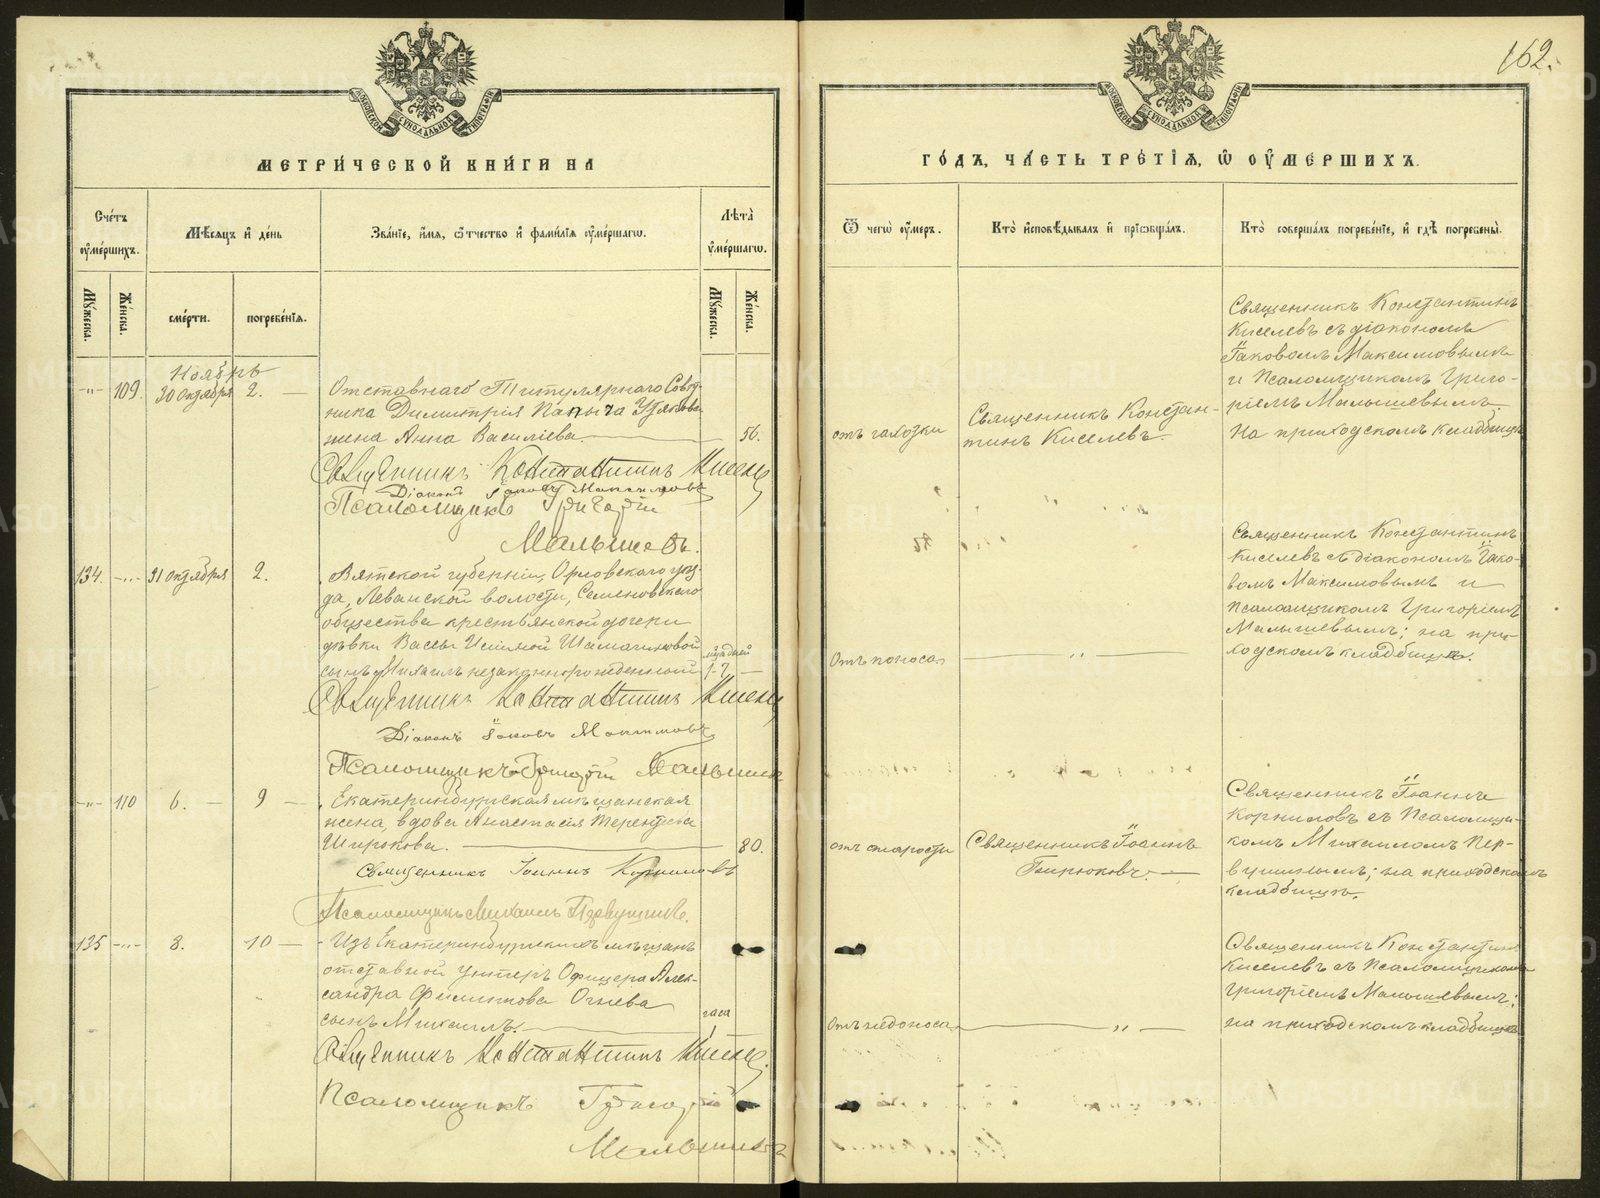 162.
МЕТРИЧЕСКОЙ КНИГИ НА
ГОДЪ, ЧАСТЬ ТРЕТІЯ, Ѿ ОУМЕРШИХЪ.
Счетъ оумершихъ.
Мѣсяцъ и день
Званіе, имя, отчество и фамилія оумершагѡ.
Лѣта оумершагѡ.
Ѿ чегѡ оумеръ.
Кто исповѣдывалъ и пріобщалъ.
Кто совершалъ погребеніе, и гдѣ погребены.
Мужеска.
Женска.
смерти.
погребенія.
Мужеска.
Женска.
Ноябрь
-"- 109. 30 Октября 2. —
Отставнаго Титулярнаго Совѣт-
ника Димитрія
жена Анна Василіева. 56.
отъ
Священникъ Констан-
тинъ Киселевъ.
Священникъ Константинъ
Киселевъ съ діакономъ
Іаковомъ Максимовымъ
и Псаломщикомъ Григо-
ріемъ Малышевымъ.
На приходскомъ кладбищѣ
Священникъ Константинъ Киселевъ
Діаконъ Іаковъ Максимовъ
Псаломщикъ Григорій
Малышевъ.
134. -"- 31 Октября 2.
Вятской губерніи, Орловскаго уѣз-
да, Леванской волости, Семеновскаго
общества крестьянской дочери
дѣвки Вассы
сынъ Михаилъ незаконнорожденный
Отъ поноса — " —
Священникъ Константинъ
Киселевъ съ діакономъ Іако-
вомъ Максимовымъ и
псаломщикомъ Григоріемъ
Малышевымъ; на при-
ходскомъ кладбищѣ.
Священникъ Константинъ Киселевъ
Діаконъ Іаковъ Максимовъ
Псаломщикъ Григорій Малышевъ
-"- 110 6. — 9 —
Екатеринбургская мѣщанская
жена, вдова Анастасія Терентьева
Широкова. 80.
отъ старости
Священникъ Іоаннъ
Бирюковъ. —
Священникъ Іоаннъ
Корниловъ съ Псаломщи-
комъ Михаиломъ Пер-
вушинымъ; на приходскомъ
кладбищѣ.
Священникъ Іоаннъ Корниловъ
Псаломщикъ Михаилъ Первушинъ.
135 -"- 8. 10 —
Изъ Екатеринбургскихъ мѣщанъ
отставной унтеръ Офицера Алек-
сандра Филиппова Огнева
сынъ Михаилъ. часа
Отъ недоноса — " —
Священникъ Константинъ
Киселевъ съ Псаломщикомъ
Григоріемъ Малышевымъ;
на приходскомъ кладбищѣ
Священникъ Константинъ Киселевъ.
Псаломщикъ Григорій
Малышевъ